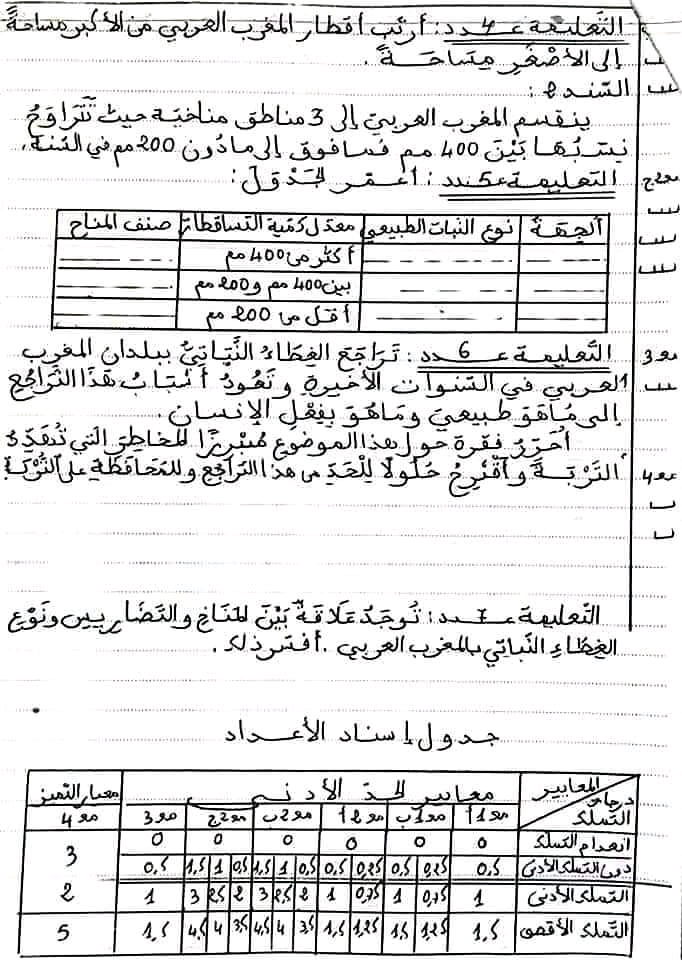 التعليمة عـــ4ـدد : أرتّب أقطار المغرب العربي من الأكبر مساحةً
إلى الأصْغَرِ مِسَاحَــةً .
السّند 8 :
ينقسم المغرب العربيّ إلى 3 مناطق مناخيّة حيث تَتَرَاوَحُ
نِسَبُهَا بَيْنَ 400 مم فما فوق إلى ما دُون 200 مم في السّنة .
مع2ج
التعليمة عـ5ـدد : أعمّر الجَدْوَل :
الجِهَةُ | نوع النبات الطبيعي | معدّل كميّة التساقطات | صنف المناخ
أكثر من 400 مم
بين 400 مم و 200 مم
أقلّ من 200 مم
مع 3
التّعليمة عــ6ــدد : تَرَاجَعَ الغِطَاءُ النَّبَاتِيُّ ببلدان المغرب
العربي في السّنوات الأخيرة و تَعُودُ أسْبَابُ هَذَا التَّرَاجُعِ
إلى مَا هُوَ طبيعيّ وما هُوَ بِفِعْلِ الإنسان .
أُحَرِّرُ فقرة حول هذا الموضوع مُبْرِزًا المخاطرَ التي تُهَدِّدُ
مع 4
التُرْبَةَ وأقْتَرِحُ حُلُولًا لِلْحَدِّ من هذا التراجع وللمُحَافَظَةِ على التُّرْبَة
التعليمة عــ7ـدد : تُوجَدُ عَلَاقَةٌ بَيْنَ المَنَاخِ والتضاريس ونَوْعِ
الغِطَاءِ النّباتي بالمغرب العربي . أفسّر ذلك .
جدول إسناد الأعداد
المعايير | درجات التملك | معايير الحدّ الأدنى | معيار التميز
مع 1أ | مع 1ب | مع 2أ | مع 2ب | مع 2ج | مع 3 | مع 4
انعدام التملك | 0 | 0 | 0 | 0 | 0 | 0
دون التملك الأدنى | 0,5 | 0,25 | 0,5 | 0,25 | 0,5 | 0,5 | 1 | 1,5 | 0,5 | 1 | 1,5 | 0,5 | 3
التملك الأدنى | 1 | 0,75 | 1 | 0,75 | 1 | 2 | 2,5 | 3 | 2 | 2,5 | 3 | 1 | 2
التملك الأقصى | 1,5 | 1,25 | 1,5 | 1,25 | 1,5 | 3,5 | 4 | 4,5 | 3,5 | 4 | 4,5 | 1,5 | 5